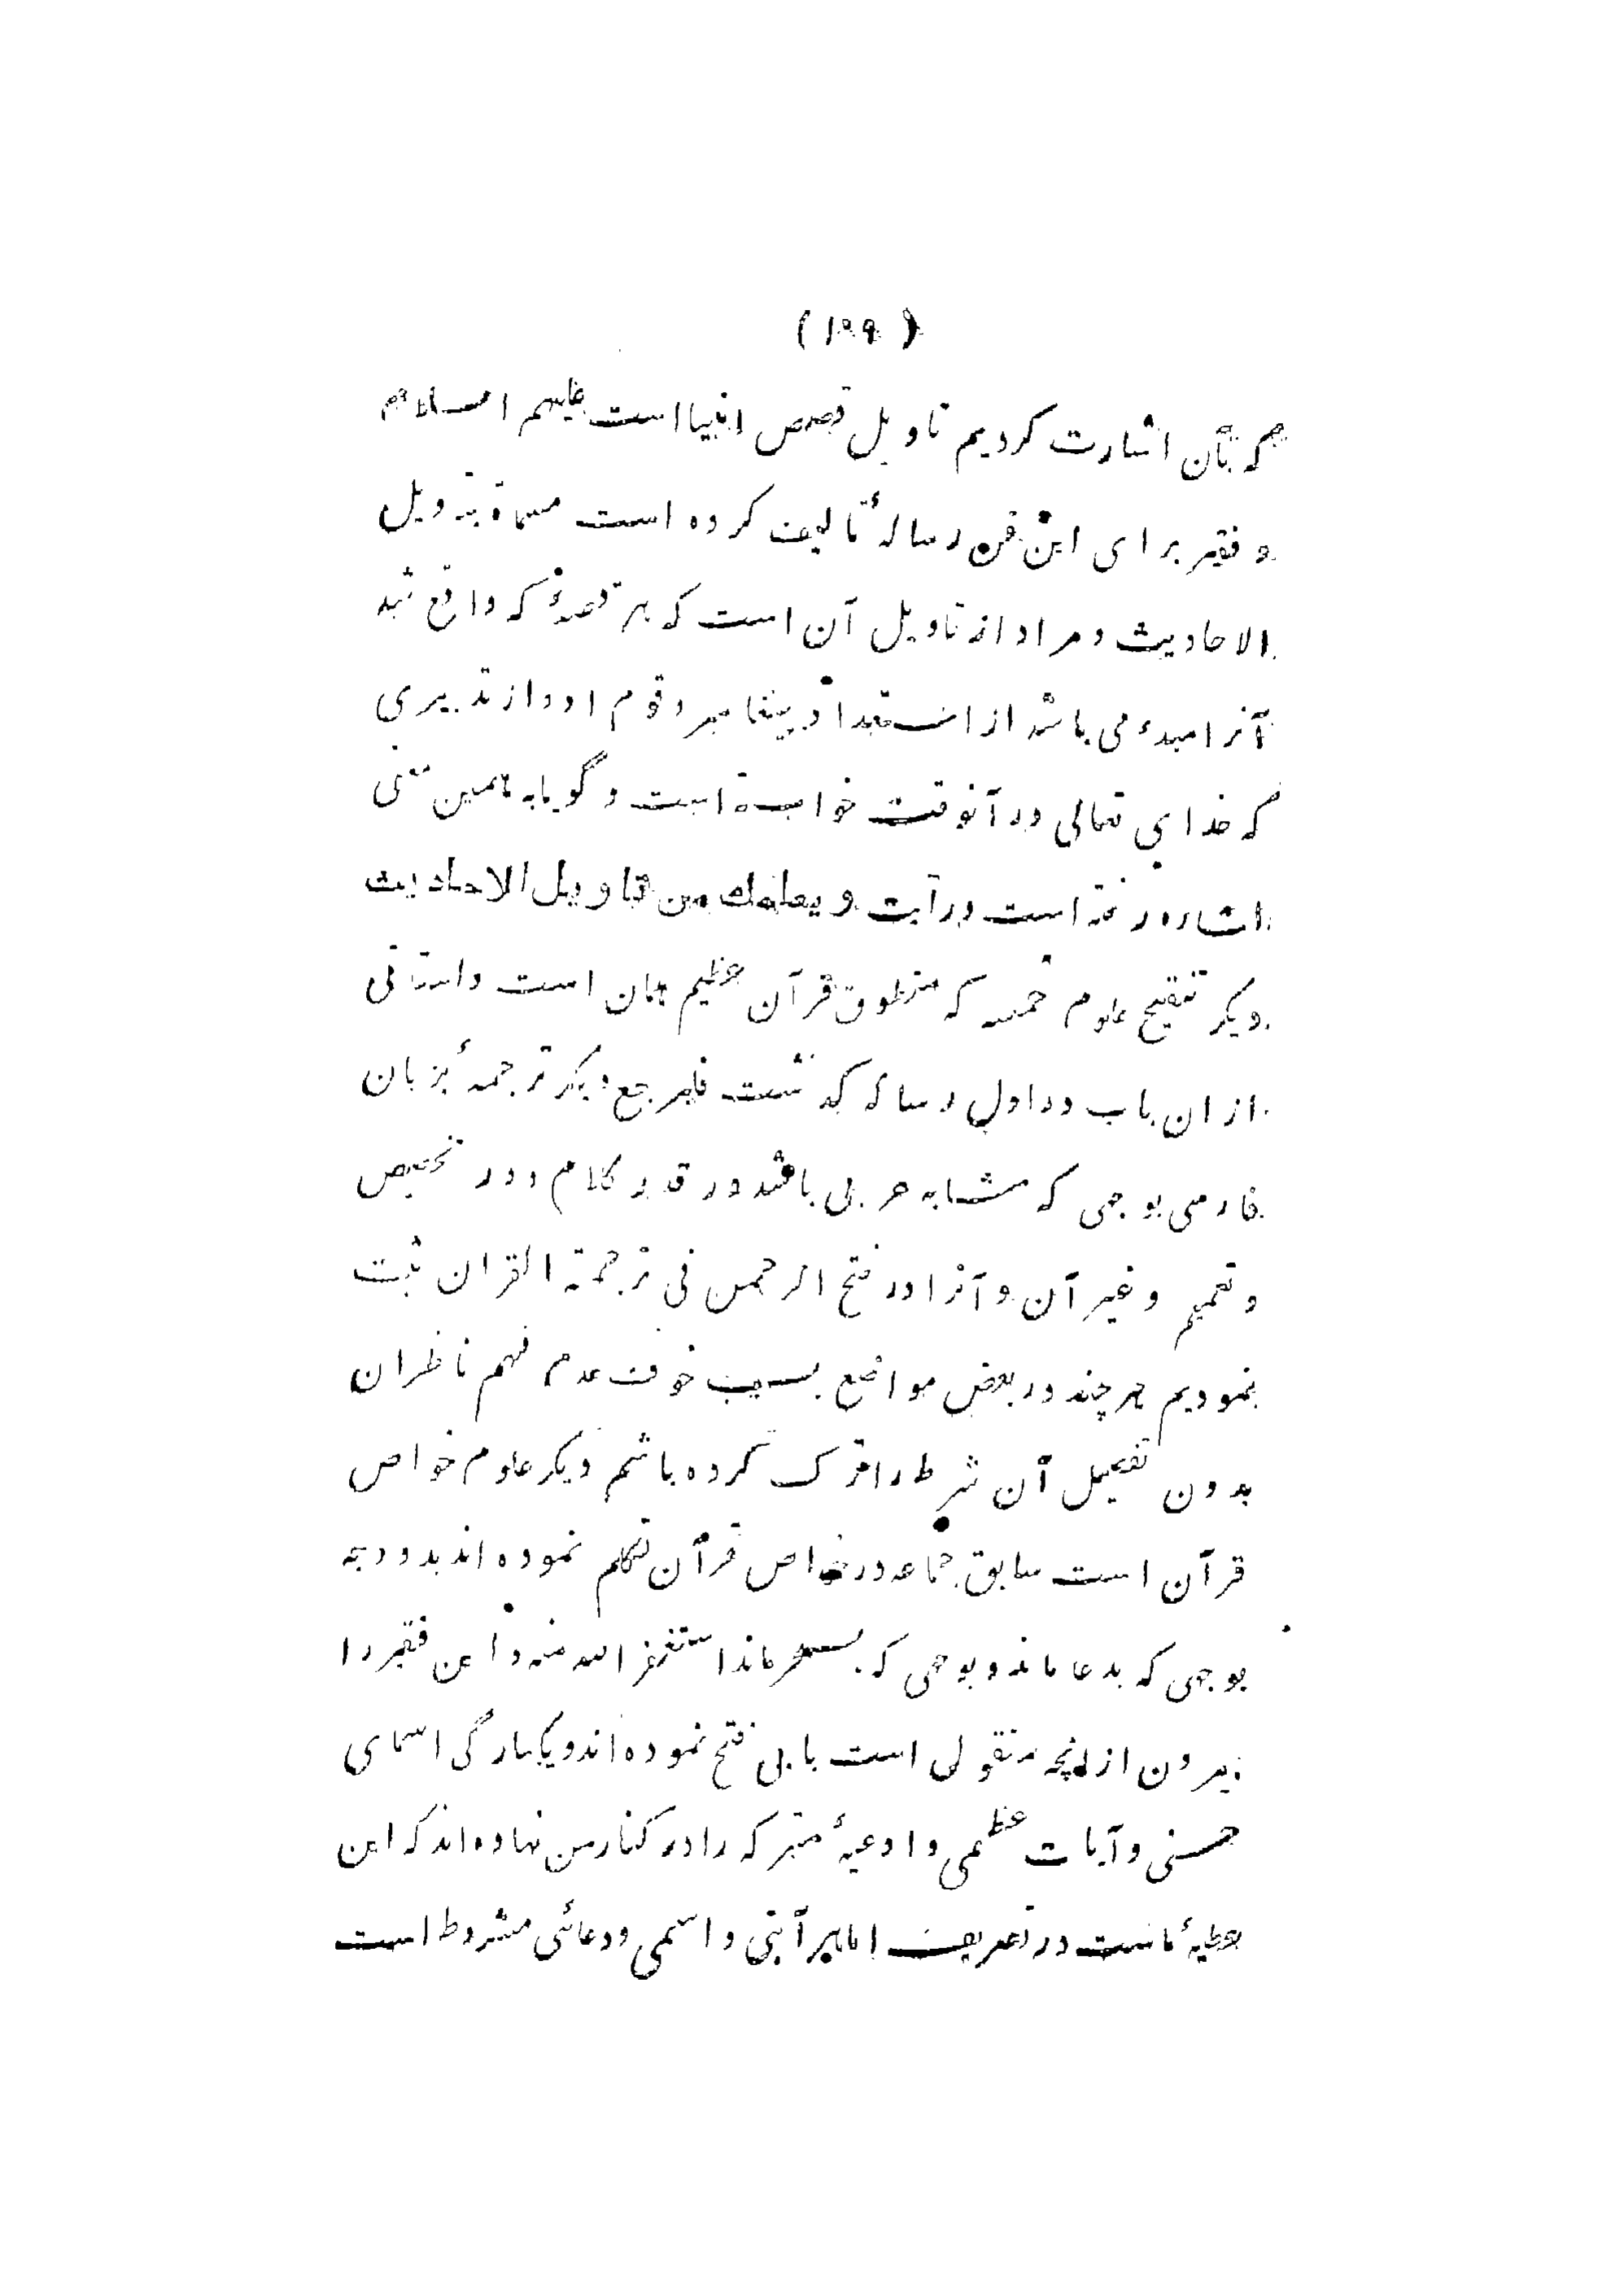 (۱۹۹)
که بآن اشارت کردیم تاویل قصص انبیا است علیهم السلام
و فقیر برای این فن رسالهٔ تالیف کرده است مسماة بتاویل
الاحادیث و مراد از تاویل آن است که هر قصهٔ که واقع شد
آنرا مبدء می باشد از استعداد پیغامبر و قوم او و از تدبیری
که خدای تعالی در آنوقت خواسته است و گویا به همین معنی
اشاره رفته است در آیت ویعلمك من تاویل الاحادیث
دیگر تنقیح علوم خمسه که منطوق قرآن عظیم همان است داستانی
ازان باب در اول رساله گذشت فلیرجع دیگر ترجمهٔ بزبان
فارسی بوجهی که مشابه عربی باشد در قدر کلام و در تخصیص
و تعمیم و غیر آن و آنرا در فتح الرحمن فی ترجمة القران ثبت
نمودیم هر چند در بعض مواضع بسبب خوف عدم فهم ناظران
بدون تفصیل آن شرط را ترک کرده باشم دیگر علوم خواص
قرآن است سابق جماعه در خواص قرآن تکلم نموده اند بدو وجه
بوجهی که بدعا ماند و بوجهی که بسحر ماند استغفر الله منه و این فقیر را
بیرون از انچه منقول است بابی فتح نموده اند و یکبارگی اسمای
حسنی و آیات عظمی و ادعیهٔ متبرکه را در کنار من نهاده اند که این
عطیهٔ ماست در تعریف اما هر آیتی و اسمی و دعائی مشروط است